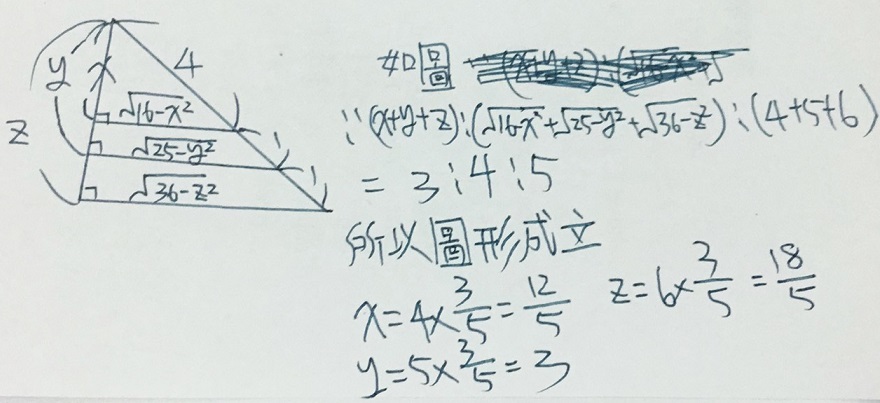 y
x
4
z
√16-x²
1
√25-y²
1
√36-z²
1
如圖
∵(x+y+z):(√16-x²+√25-y²+√36-z²):(4+5+6)
=3:4:5
所以圖形成立
x=4×3/5=12/5 z=6×3/5=18/5
y=5×3/5=3